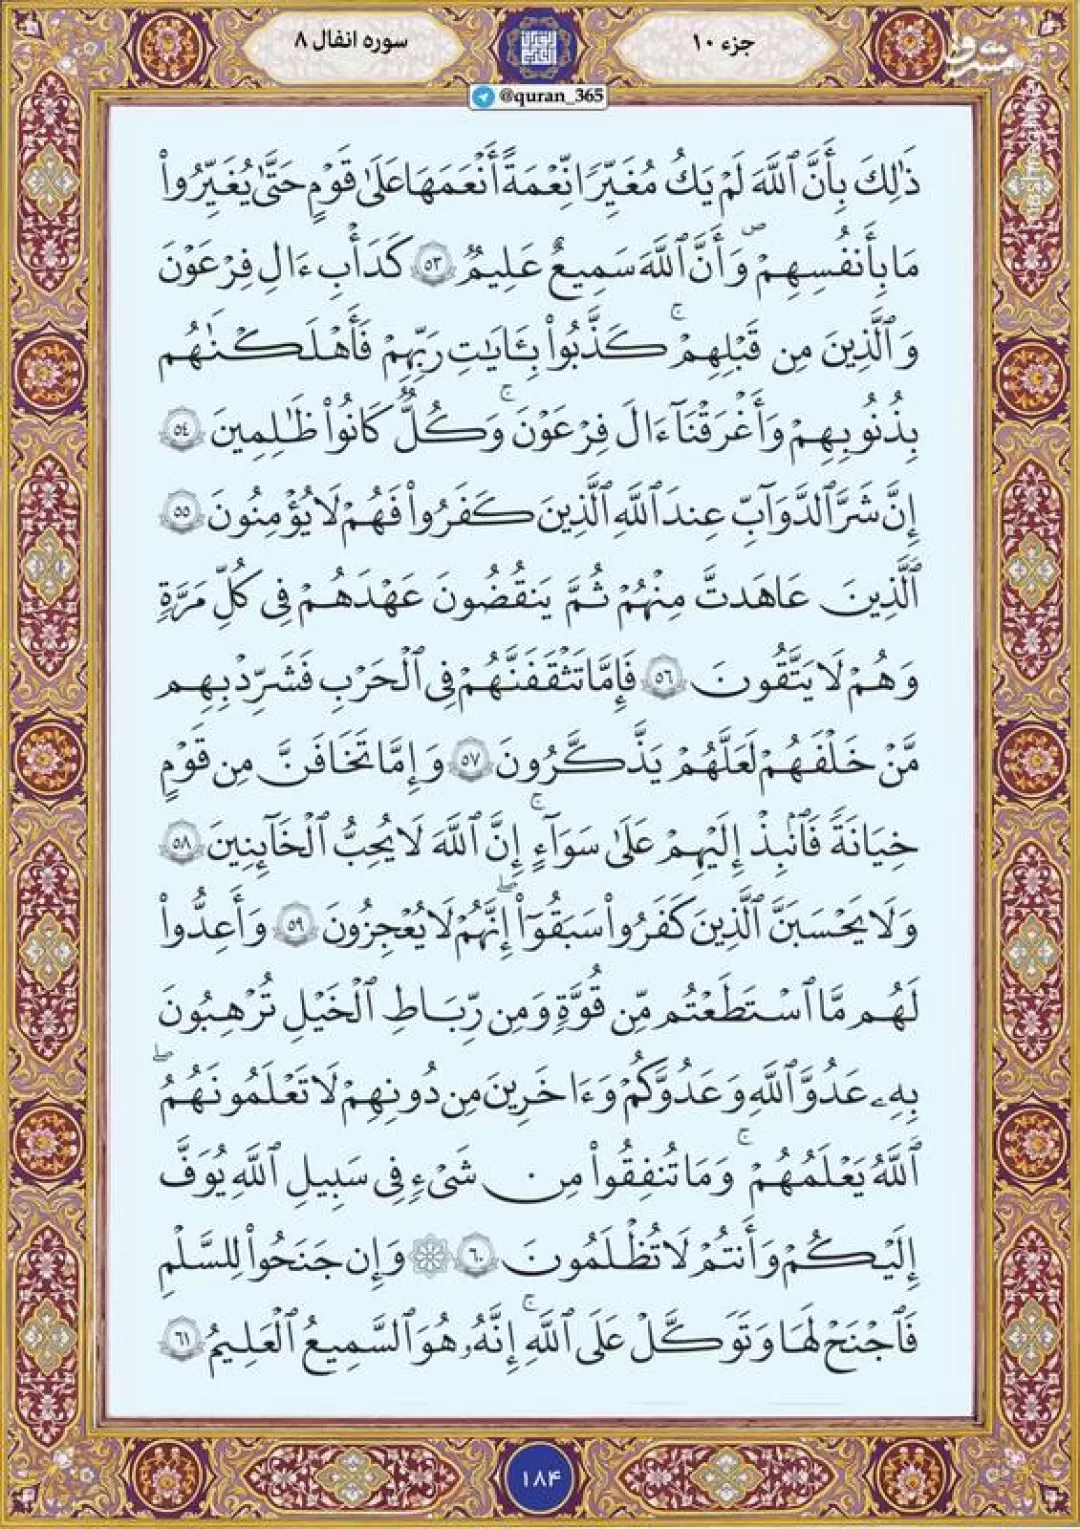 جزء ۱۰
سوره انفال ۸
مشرق
@quran_365
ذَٰلِكَ بِأَنَّ ٱللَّهَ لَمْ يَكُ مُغَيِّرًا نِّعْمَةً أَنْعَمَهَا عَلَىٰ قَوْمٍ حَتَّىٰ يُغَيِّرُوا۟
مَا بِأَنفُسِهِمْ ۙ وَأَنَّ ٱللَّهَ سَمِيعٌ عَلِيمٌ ٥٣ كَدَأْبِ ءَالِ فِرْعَوْنَ
وَٱلَّذِينَ مِن قَبْلِهِمْ ۚ كَذَّبُوا۟ بِـَٔايَـٰتِ رَبِّهِمْ فَأَهْلَكْنَـٰهُم
بِذُنُوبِهِمْ وَأَغْرَقْنَآ ءَالَ فِرْعَوْنَ ۚ وَكُلٌّ كَانُوا۟ ظَـٰلِمِينَ ٥٤
إِنَّ شَرَّ ٱلدَّوَآبِّ عِندَ ٱللَّهِ ٱلَّذِينَ كَفَرُوا۟ فَهُمْ لَا يُؤْمِنُونَ ٥٥
ٱلَّذِينَ عَاهَدتَّ مِنْهُمْ ثُمَّ يَنقُضُونَ عَهْدَهُمْ فِى كُلِّ مَرَّةٍ
وَهُمْ لَا يَتَّقُونَ ٥٦ فَإِمَّا تَثْقَفَنَّهُمْ فِى ٱلْحَرْبِ فَشَرِّدْ بِهِم
مَّنْ خَلْفَهُمْ لَعَلَّهُمْ يَذَّكَّرُونَ ٥٧ وَإِمَّا تَخَافَنَّ مِن قَوْمٍ
خِيَانَةً فَٱنۢبِذْ إِلَيْهِمْ عَلَىٰ سَوَآءٍ ۚ إِنَّ ٱللَّهَ لَا يُحِبُّ ٱلْخَآئِنِينَ ٥٨
وَلَا يَحْسَبَنَّ ٱلَّذِينَ كَفَرُوا۟ سَبَقُوٓا۟ ۖ إِنَّهُمْ لَا يُعْجِزُونَ ٥٩ وَأَعِدُّوا۟
لَهُم مَّا ٱسْتَطَعْتُم مِّن قُوَّةٍ وَمِن رِّبَاطِ ٱلْخَيْلِ تُرْهِبُونَ
بِهِۦ عَدُوَّ ٱللَّهِ وَعَدُوَّكُمْ وَءَاخَرِينَ مِن دُونِهِمْ لَا تَعْلَمُونَهُمُ ۖ
ٱللَّهُ يَعْلَمُهُمْ ۚ وَمَا تُنفِقُوا۟ مِن شَىْءٍ فِى سَبِيلِ ٱللَّهِ يُوَفَّ
إِلَيْكُمْ وَأَنتُمْ لَا تُظْلَمُونَ ٦٠ ۞ وَإِن جَنَحُوا۟ لِلسَّلْمِ
فَٱجْنَحْ لَهَا وَتَوَكَّلْ عَلَى ٱللَّهِ ۚ إِنَّهُۥ هُوَ ٱلسَّمِيعُ ٱلْعَلِيمُ ٦١
۱۸۴